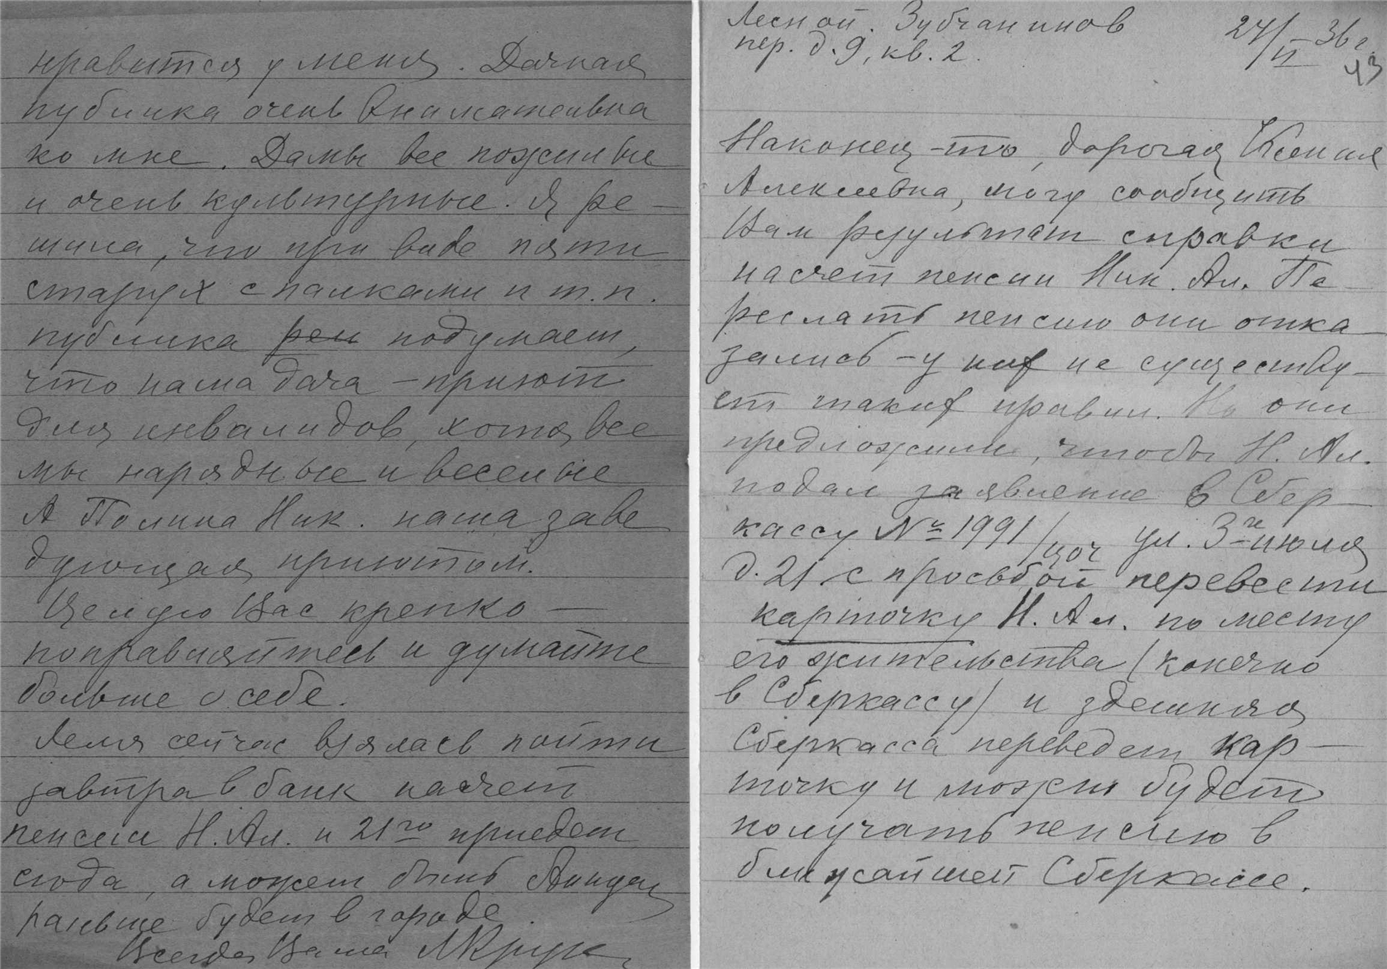 нравится у меня. Дачная
публика очень внимательна
ко мне. Дамы все пожилые
и очень культурные. Я ре-
шила, что при виде пяти
старух с палками и т.п.
публика реш подумает,
что наша дача – приют
для инвалидов, хотя все
мы нарядные и веселые
А Полина Ник. наша заве
дующая приютом.
Целую Вас крепко –
поправляйтесь и думайте
больше о себе.
Леля сейчас взялась пойти
завтра в банк насчет
пенсии Н. Ал. и 21го приедет
сюда, а может быть
раньше будет в городе.
Всегда Ваша МКрук
Лесной. Зубчанинов
пер. д. 9, кв. 2.
24/VI 36 г.
43
Наконец-то, дорогая Ксения
Алексеевна, могу сообщить
Вам результат справки
насчет пенсии Ник. Ал. Пе-
реслать пенсию они отка
зались – у них не существу-
ет таких правил. Но они
предложили, чтобы Н. Ал.
подал заявление в Сбер-
кассу № 1991/ ул. 3го июля
д. 21 с просьбой перевести
карточку Н. Ал. по месту
его жительства (конечно
в Сберкассу) и здешняя
Сберкасса переведет кар-
точку и можно будет
получать пенсию в
ближайшей Сберкассе.